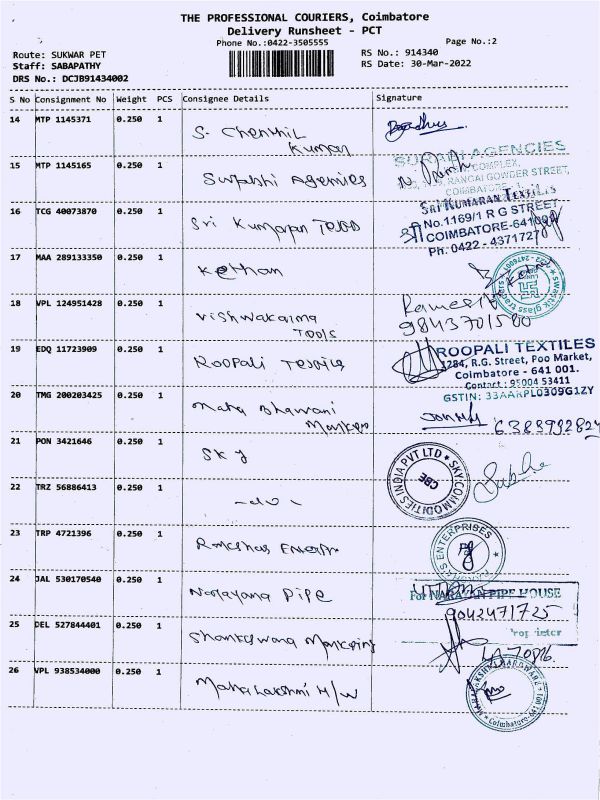 THE PROFESSIONAL COURIERS, Coimbatore
Delivery Runsheet - PCT
Phone No.:0422-3505555
Page No.:2
Route: SUKWAR PET
Staff: SABAPATHY
DRS No.: DCJB91434002
RS No.: 914340
RS Date: 30-Mar-2022
S No Consignment No Weight PCS Consignee Details Signature
14 MTP 1145371 0.250 1 S. Chenthil
Kumar
15 MTP 1145165 0.250 1 Agencies
AGENCIES
COMPLEX,
RANGAI GOWDER STREET,
COIMBATORE
16 TCG 40073870 0.250 1 Sri Kumaran
SRI KUMARAN TEXTILES
No.1169/1 R G STREET
COIMBATORE-641001
Ph. 0422 - 4371727
17 MAA 289133350 0.250 1
swastik glass
18 VPL 124951428 0.250 1 Vishwakarma
Tools
Ramesh
9843701500
19 EDQ 11723909 0.250 1 Roopali
ROOPALI TEXTILES
1284, R.G. Street, Poo Market,
Coimbatore - 641 001.
Contact : 95004 53411
GSTIN: 33AARPL0309G1ZY
20 TMG 200203425 0.250 1 Maha Bhawani
21 PON 3421646 0.250 1 Sky
SKY COMMODITIES INDIA PVT LTD
CBE
22 TRZ 56886413 0.250 1 -do-
23 TRP 4721396 0.250 1
ENTERPRISES
24 JAL 530170540 0.250 1 Narayana Pipe
For NARAYAN PIPE HOUSE
9042471725
Proprietor
25 DEL 527844401 0.250 1
26 VPL 938534000 0.250 1 Mahalakshmi H/W
MAHALAKSHMI HARDWARE
Coimbatore-641 001